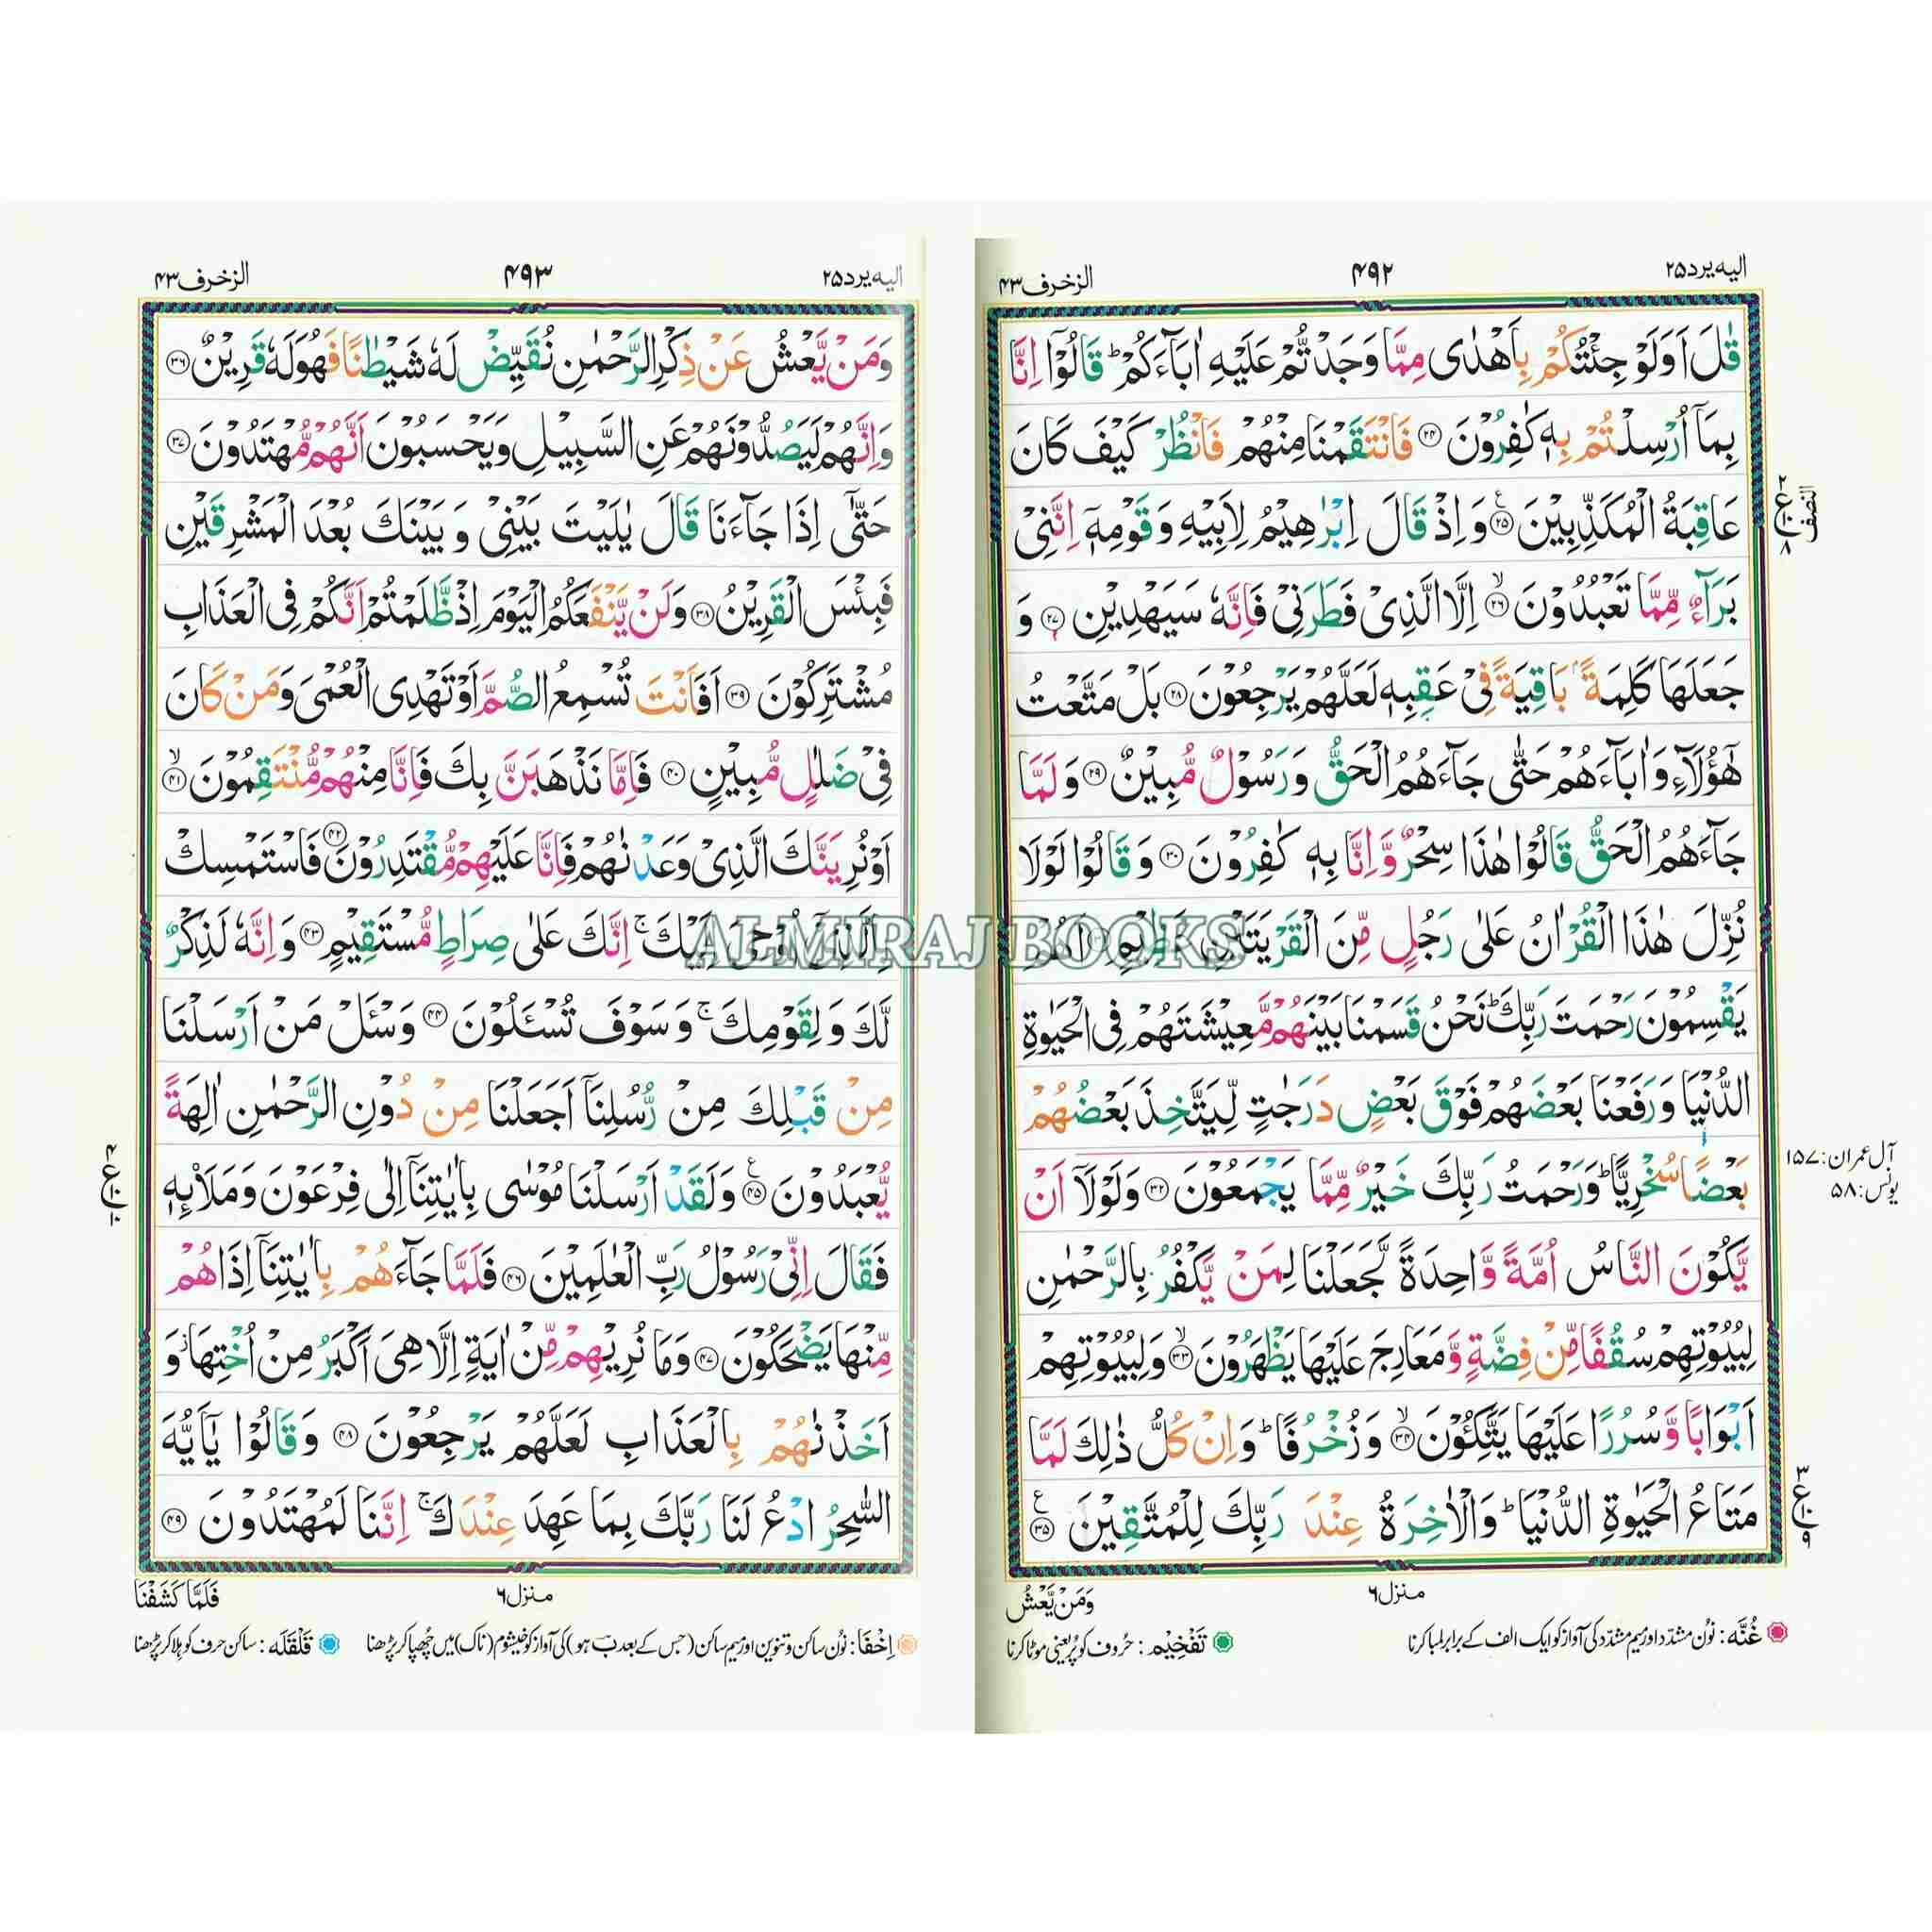 الیه یرد ۲۵
۴۹۲
الزخرف ۴۳
قٰلَ اَوَلَوْ جِئْتُكُمْ بِاَهْدٰى مِمَّا وَجَدْتُّمْ عَلَيْهِ اٰبَآءَكُمْ ؕ قَالُوْۤا اِنَّا
بِمَاۤ اُرْسِلْتُمْ بِهٖ كٰفِرُوْنَ ۲۴ فَانْتَقَمْنَا مِنْهُمْ فَانْظُرْ كَيْفَ كَانَ
عَاقِبَةُ الْمُكَذِّبِيْنَ ۲۵ وَ اِذْ قَالَ اِبْرٰهِيْمُ لِاَبِيْهِ وَ قَوْمِهٖۤ اِنَّنِيْ
بَرَآءٌ مِّمَّا تَعْبُدُوْنَ ۲۶ اِلَّا الَّذِيْ فَطَرَنِيْ فَاِنَّهٗ سَيَهْدِيْنِ ۲۷ وَ
جَعَلَهَا كَلِمَةًۢ بَاقِيَةً فِيْ عَقِبِهٖ لَعَلَّهُمْ يَرْجِعُوْنَ ۲۸ بَلْ مَتَّعْتُ
هٰۤؤُلَآءِ وَ اٰبَآءَهُمْ حَتّٰى جَآءَهُمُ الْحَقُّ وَ رَسُوْلٌ مُّبِيْنٌ ۲۹ وَ لَمَّا
جَآءَهُمُ الْحَقُّ قَالُوْا هٰذَا سِحْرٌ وَّ اِنَّا بِهٖ كٰفِرُوْنَ ۳۰ وَ قَالُوْا لَوْلَا
نُزِّلَ هٰذَا الْقُرْاٰنُ عَلٰى رَجُلٍ مِّنَ الْقَرْيَتَيْنِ عَظِيْمٍ ۳۱ اَهُمْ
يَقْسِمُوْنَ رَحْمَتَ رَبِّكَ ؕ نَحْنُ قَسَمْنَا بَيْنَهُمْ مَّعِيْشَتَهُمْ فِي الْحَيٰوةِ
الدُّنْيَا وَ رَفَعْنَا بَعْضَهُمْ فَوْقَ بَعْضٍ دَرَجٰتٍ لِّيَتَّخِذَ بَعْضُهُمْ
بَعْضًا سُخْرِيًّا ؕ وَ رَحْمَتُ رَبِّكَ خَيْرٌ مِّمَّا يَجْمَعُوْنَ ۳۲ وَ لَوْلَاۤ اَنْ
يَّكُوْنَ النَّاسُ اُمَّةً وَّاحِدَةً لَّجَعَلْنَا لِمَنْ يَّكْفُرُ بِالرَّحْمٰنِ
لِبُيُوْتِهِمْ سُقُفًا مِّنْ فِضَّةٍ وَّ مَعَارِجَ عَلَيْهَا يَظْهَرُوْنَ ۳۳ وَ لِبُيُوْتِهِمْ
اَبْوَابًا وَّ سُرُرًا عَلَيْهَا يَتَّكِئُوْنَ ۳۴ وَ زُخْرُفًا ؕ وَ اِنْ كُلُّ ذٰلِكَ لَمَّا
مَتَاعُ الْحَيٰوةِ الدُّنْيَا ؕ وَ الْاٰخِرَةُ عِنْدَ رَبِّكَ لِلْمُتَّقِيْنَ ۳۵
النصف
۲
ع
۱۰
۸
آل عمران: ۱۵۷
یونس: ۵۸
۳
ع
۱۰
۹
منزل ۶
وَمَنْ يَّعْشُ
غُنَّه: نُون مشدّد اور میم مشدّد کی آواز کو ایک الف کے برابر لمبا کرنا
تَفْخِیْم: حرُوف کو پُر یعنی موٹا کرنا
الیه یرد ۲۵
۴۹۳
الزخرف ۴۳
وَ مَنْ يَّعْشُ عَنْ ذِكْرِ الرَّحْمٰنِ نُقَيِّضْ لَهٗ شَيْطٰنًا فَهُوَ لَهٗ قَرِيْنٌ ۳۶
وَ اِنَّهُمْ لَيَصُدُّوْنَهُمْ عَنِ السَّبِيْلِ وَ يَحْسَبُوْنَ اَنَّهُمْ مُّهْتَدُوْنَ ۳۷
حَتّٰۤى اِذَا جَآءَنَا قَالَ يٰلَيْتَ بَيْنِيْ وَ بَيْنَكَ بُعْدَ الْمَشْرِقَيْنِ
فَبِئْسَ الْقَرِيْنُ ۳۸ وَ لَنْ يَّنْفَعَكُمُ الْيَوْمَ اِذْ ظَّلَمْتُمْ اَنَّكُمْ فِي الْعَذَابِ
مُشْتَرِكُوْنَ ۳۹ اَفَاَنْتَ تُسْمِعُ الصُّمَّ اَوْ تَهْدِي الْعُمْيَ وَ مَنْ كَانَ
فِيْ ضَلٰلٍ مُّبِيْنٍ ۴۰ فَاِمَّا نَذْهَبَنَّ بِكَ فَاِنَّا مِنْهُمْ مُّنْتَقِمُوْنَ ۴۱
اَوْ نُرِيَنَّكَ الَّذِيْ وَعَدْنٰهُمْ فَاِنَّا عَلَيْهِمْ مُّقْتَدِرُوْنَ ۴۲ فَاسْتَمْسِكْ
بِالَّذِيْۤ اُوْحِيَ اِلَيْكَ ۚ اِنَّكَ عَلٰى صِرَاطٍ مُّسْتَقِيْمٍ ۴۳ وَ اِنَّهٗ لَذِكْرٌ
لَّكَ وَ لِقَوْمِكَ ۚ وَ سَوْفَ تُسْـَٔلُوْنَ ۴۴ وَ سْـَٔلْ مَنْ اَرْسَلْنَا
مِنْ قَبْلِكَ مِنْ رُّسُلِنَاۤ اَجَعَلْنَا مِنْ دُوْنِ الرَّحْمٰنِ اٰلِهَةً
يُّعْبَدُوْنَ ۴۵ وَ لَقَدْ اَرْسَلْنَا مُوْسٰى بِاٰيٰتِنَاۤ اِلٰى فِرْعَوْنَ وَ مَلَا۟ئِهٖ
فَقَالَ اِنِّيْ رَسُوْلُ رَبِّ الْعٰلَمِيْنَ ۴۶ فَلَمَّا جَآءَهُمْ بِاٰيٰتِنَاۤ اِذَا هُمْ
مِّنْهَا يَضْحَكُوْنَ ۴۷ وَ مَا نُرِيْهِمْ مِّنْ اٰيَةٍ اِلَّا هِيَ اَكْبَرُ مِنْ اُخْتِهَا ؗ وَ
اَخَذْنٰهُمْ بِالْعَذَابِ لَعَلَّهُمْ يَرْجِعُوْنَ ۴۸ وَ قَالُوْا يٰۤاَيُّهَ
السّٰحِرُ ادْعُ لَنَا رَبَّكَ بِمَا عَهِدَ عِنْدَكَ ۚ اِنَّنَا لَمُهْتَدُوْنَ ۴۹
ع
۱۰
منزل ۶
فَلَمَّا كَشَفْنَا
اِخْفَا: نُون ساکن و تنوین اور میم ساکن (جس کے بعد ب ہو) کی آواز کو خیشوم (ناک) میں چُھپا کر پڑھنا
قَلْقَلَه: ساکن حرف کو ہلا کر پڑھنا
ALMIRAJ BOOKS